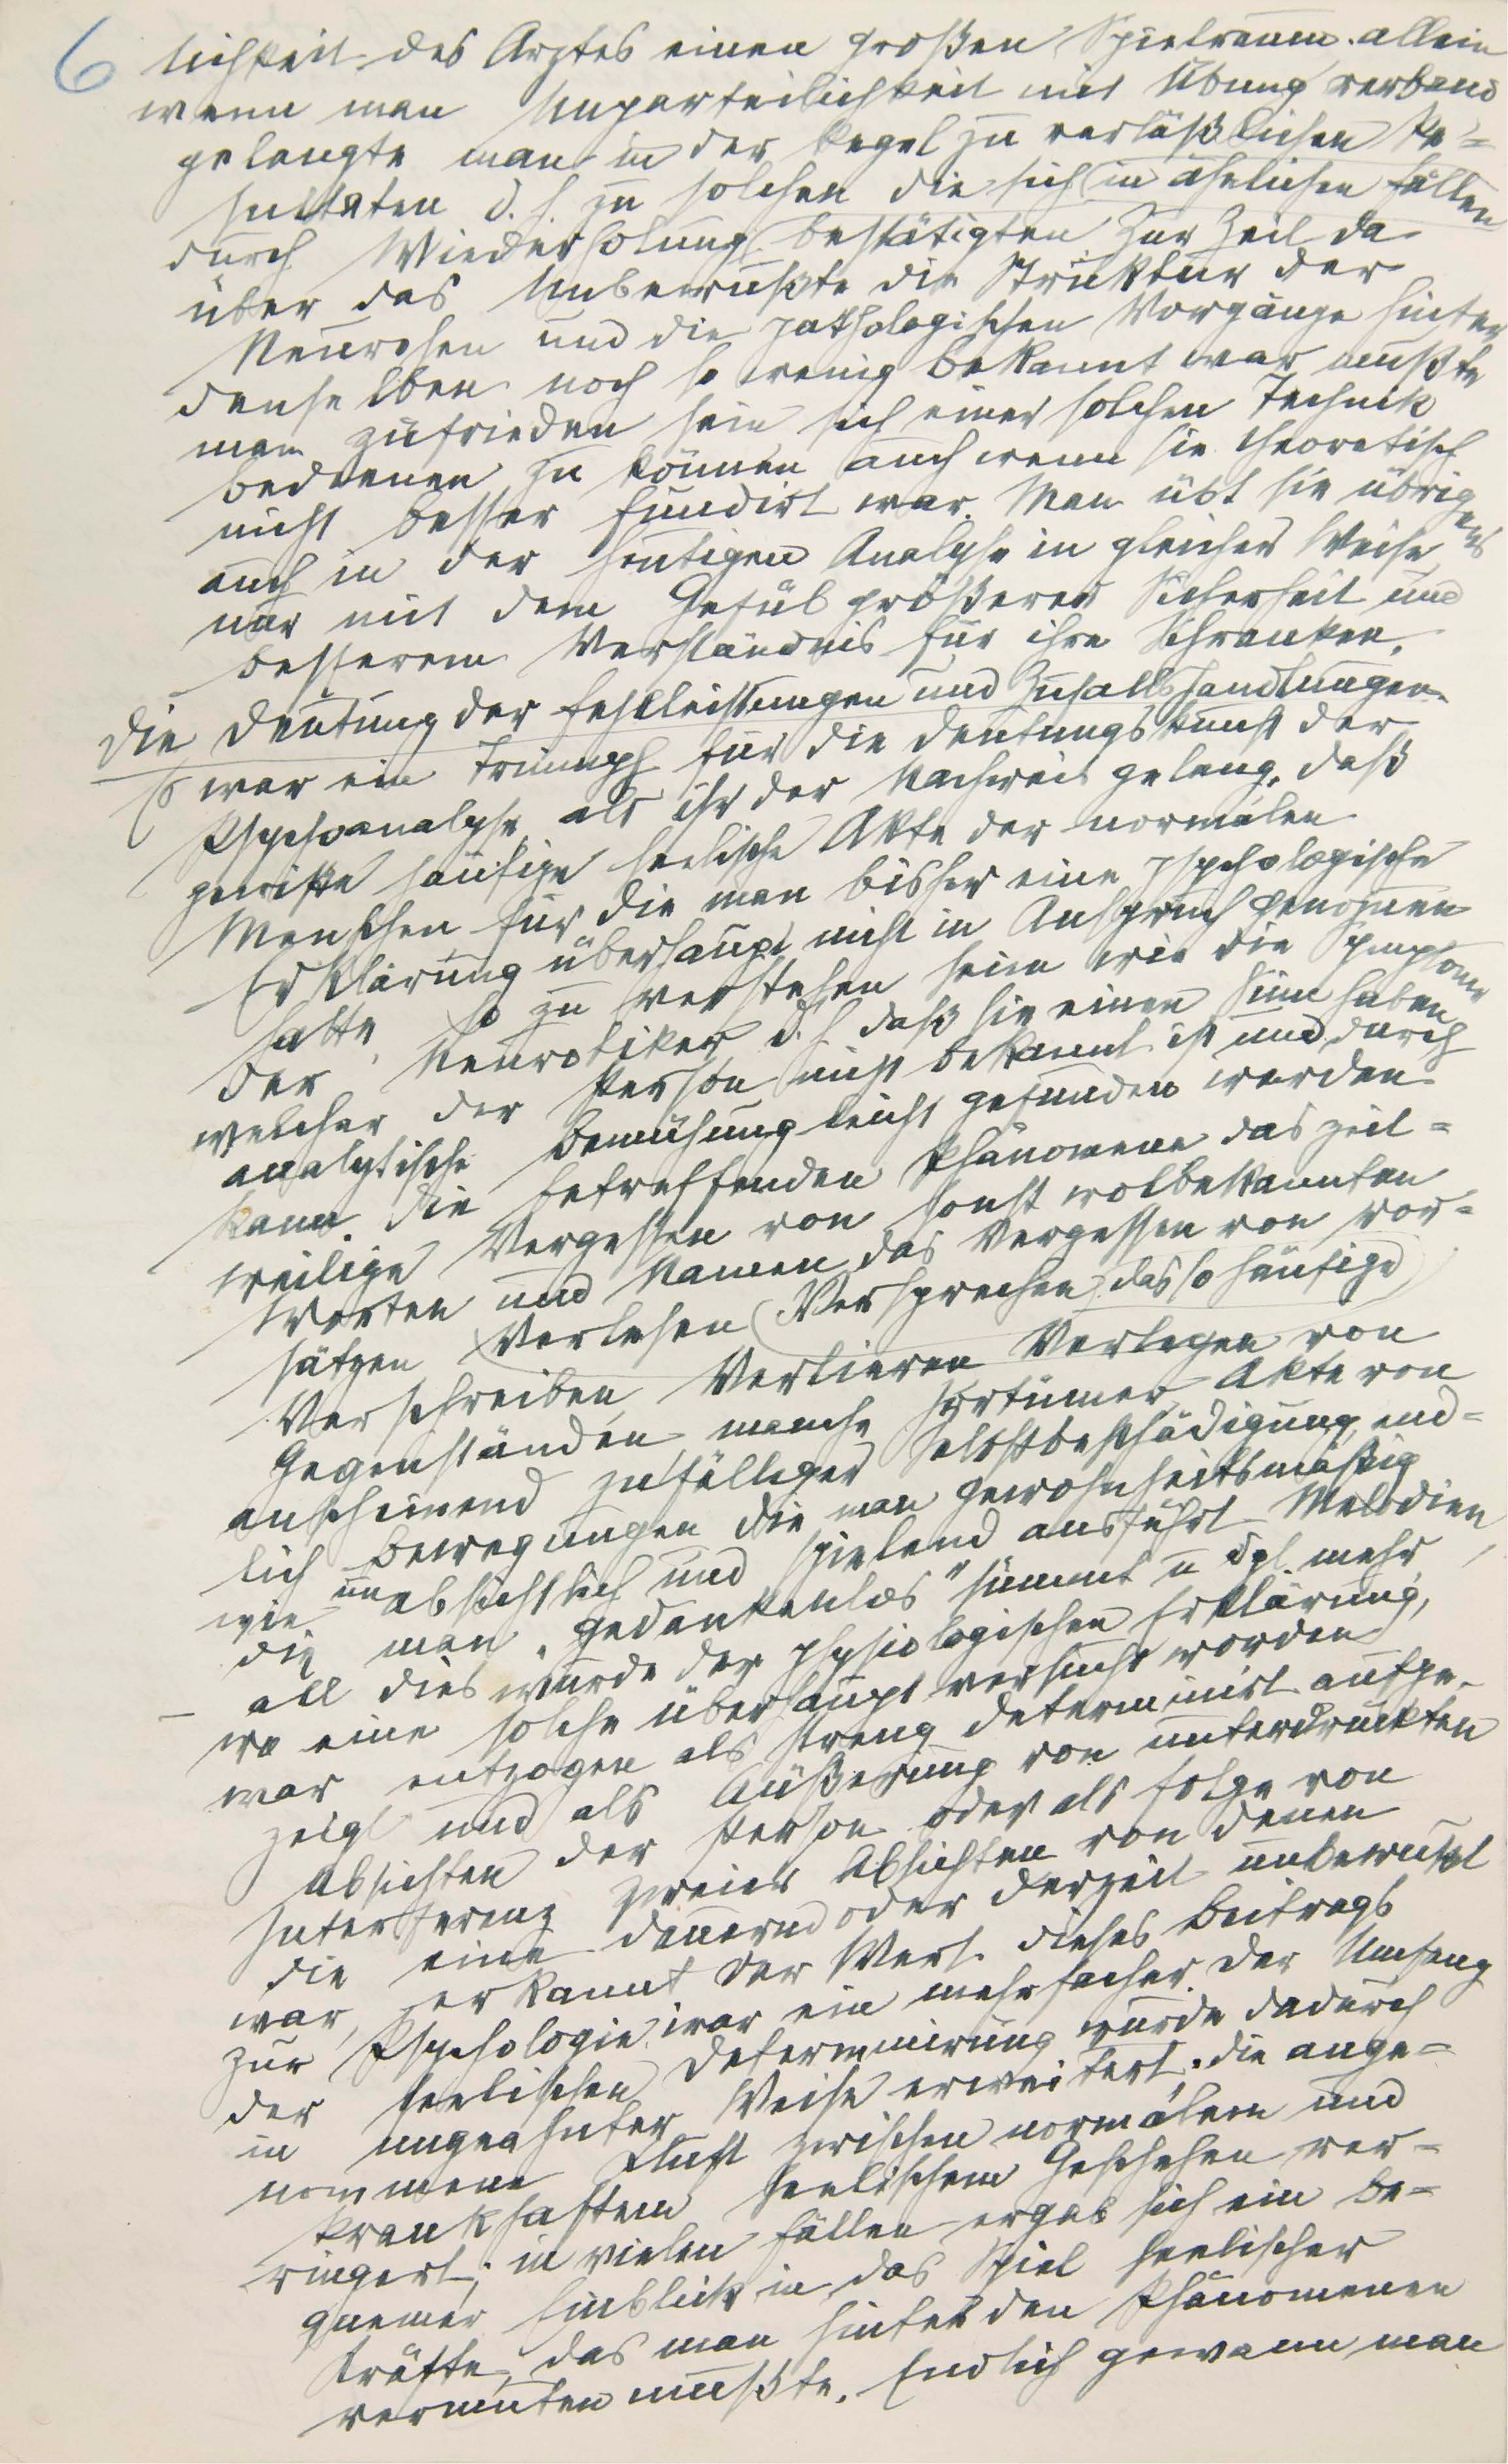 6
lichkeit des Arztes einen großen Spielraum. allein
wenn man Unparteilichkeit mit Übung verband
gelangte man in der Regel zu verläßlichen Re=
sultaten d. h. zu solchen die sich in ähnlichen Fällen
durch Wiederholung bestätigten Zur Zeit da
über das Unbewußte die Struktur der
Neurosen und die pathologischen Vorgänge hinter
denselben noch so wenig bekannt war mußte
man zufrieden sein sich einer solchen Technik
bedienen zu können auch wenn sie theoretisch
nicht besser fundirt war. Man übt sie übrigens
auch in der heutigen Analyse in gleicher Weise
nur mit dem Gefül größerer Sicherheit und
besserem Verständnis für ihre Schranken.
Die Deutung der Fehlleistungen und Zufallshandlungen.
Es war ein Triumph für die Deutungskunst der
Psychoanalyse als ihr der Nachweis gelang, daß
gewisse häufige seelische Akte der normalen
Menschen für die man bisher eine psychologische
Erklärung überhaupt nicht in Anspruch genommen
hatte, so zu verstehen seien wie die Symptome
der Neurotiker d. h daß sie einen Sinn haben
welcher der Person nicht bekannt ist und durch
analytische Bemühung leicht gefunden werden
kann. Die betreffenden Phänomene das zeit=
weilige Vergessen von sonst wolbekannten
Worten und Namen, das Vergessen von Vor=
sätzen Verlesen (Versprechen, das so häufige)
Verschreiben, Verlieren Verlegen von
Gegenständen manche Irrtümer Akte von
anscheinend zufälliger Selbstbeschädigung, end=
lich Bewegungen die man gewohnheitsmäßig
wie unabsichtlich und spielend ausführt Melodien,
die man „gedankenlos“ summt u dgl. mehr
– all dies wurde der physiologischen Erklärung,
wo eine solche überhaupt versucht worden
war entzogen als streng determinirt aufge-
zeigt und als Äußerung von unterdrückten
Absichten der Person oder als Folge von
Interferenz zweier Absichten von denen
die eine dauernd oder derzeit unbewußt
war, erkannt Der Wert dieses Beitrags
zur Psychologie war ein mehrfacher. Der Umfang
der seelischen Determinirung wurde dadurch
in ungeahnter Weise erweitert. die ange=
nommene Kluft zwischen normalem und
krankhaftem seelischem Geschehen ver=
ringert; in vielen Fällen ergab sich ein be=
quemer Einblick in das Spiel seelischer
Kräfte, das man hinter den Phänomenen
vermuten mußte. Endlich gewann man